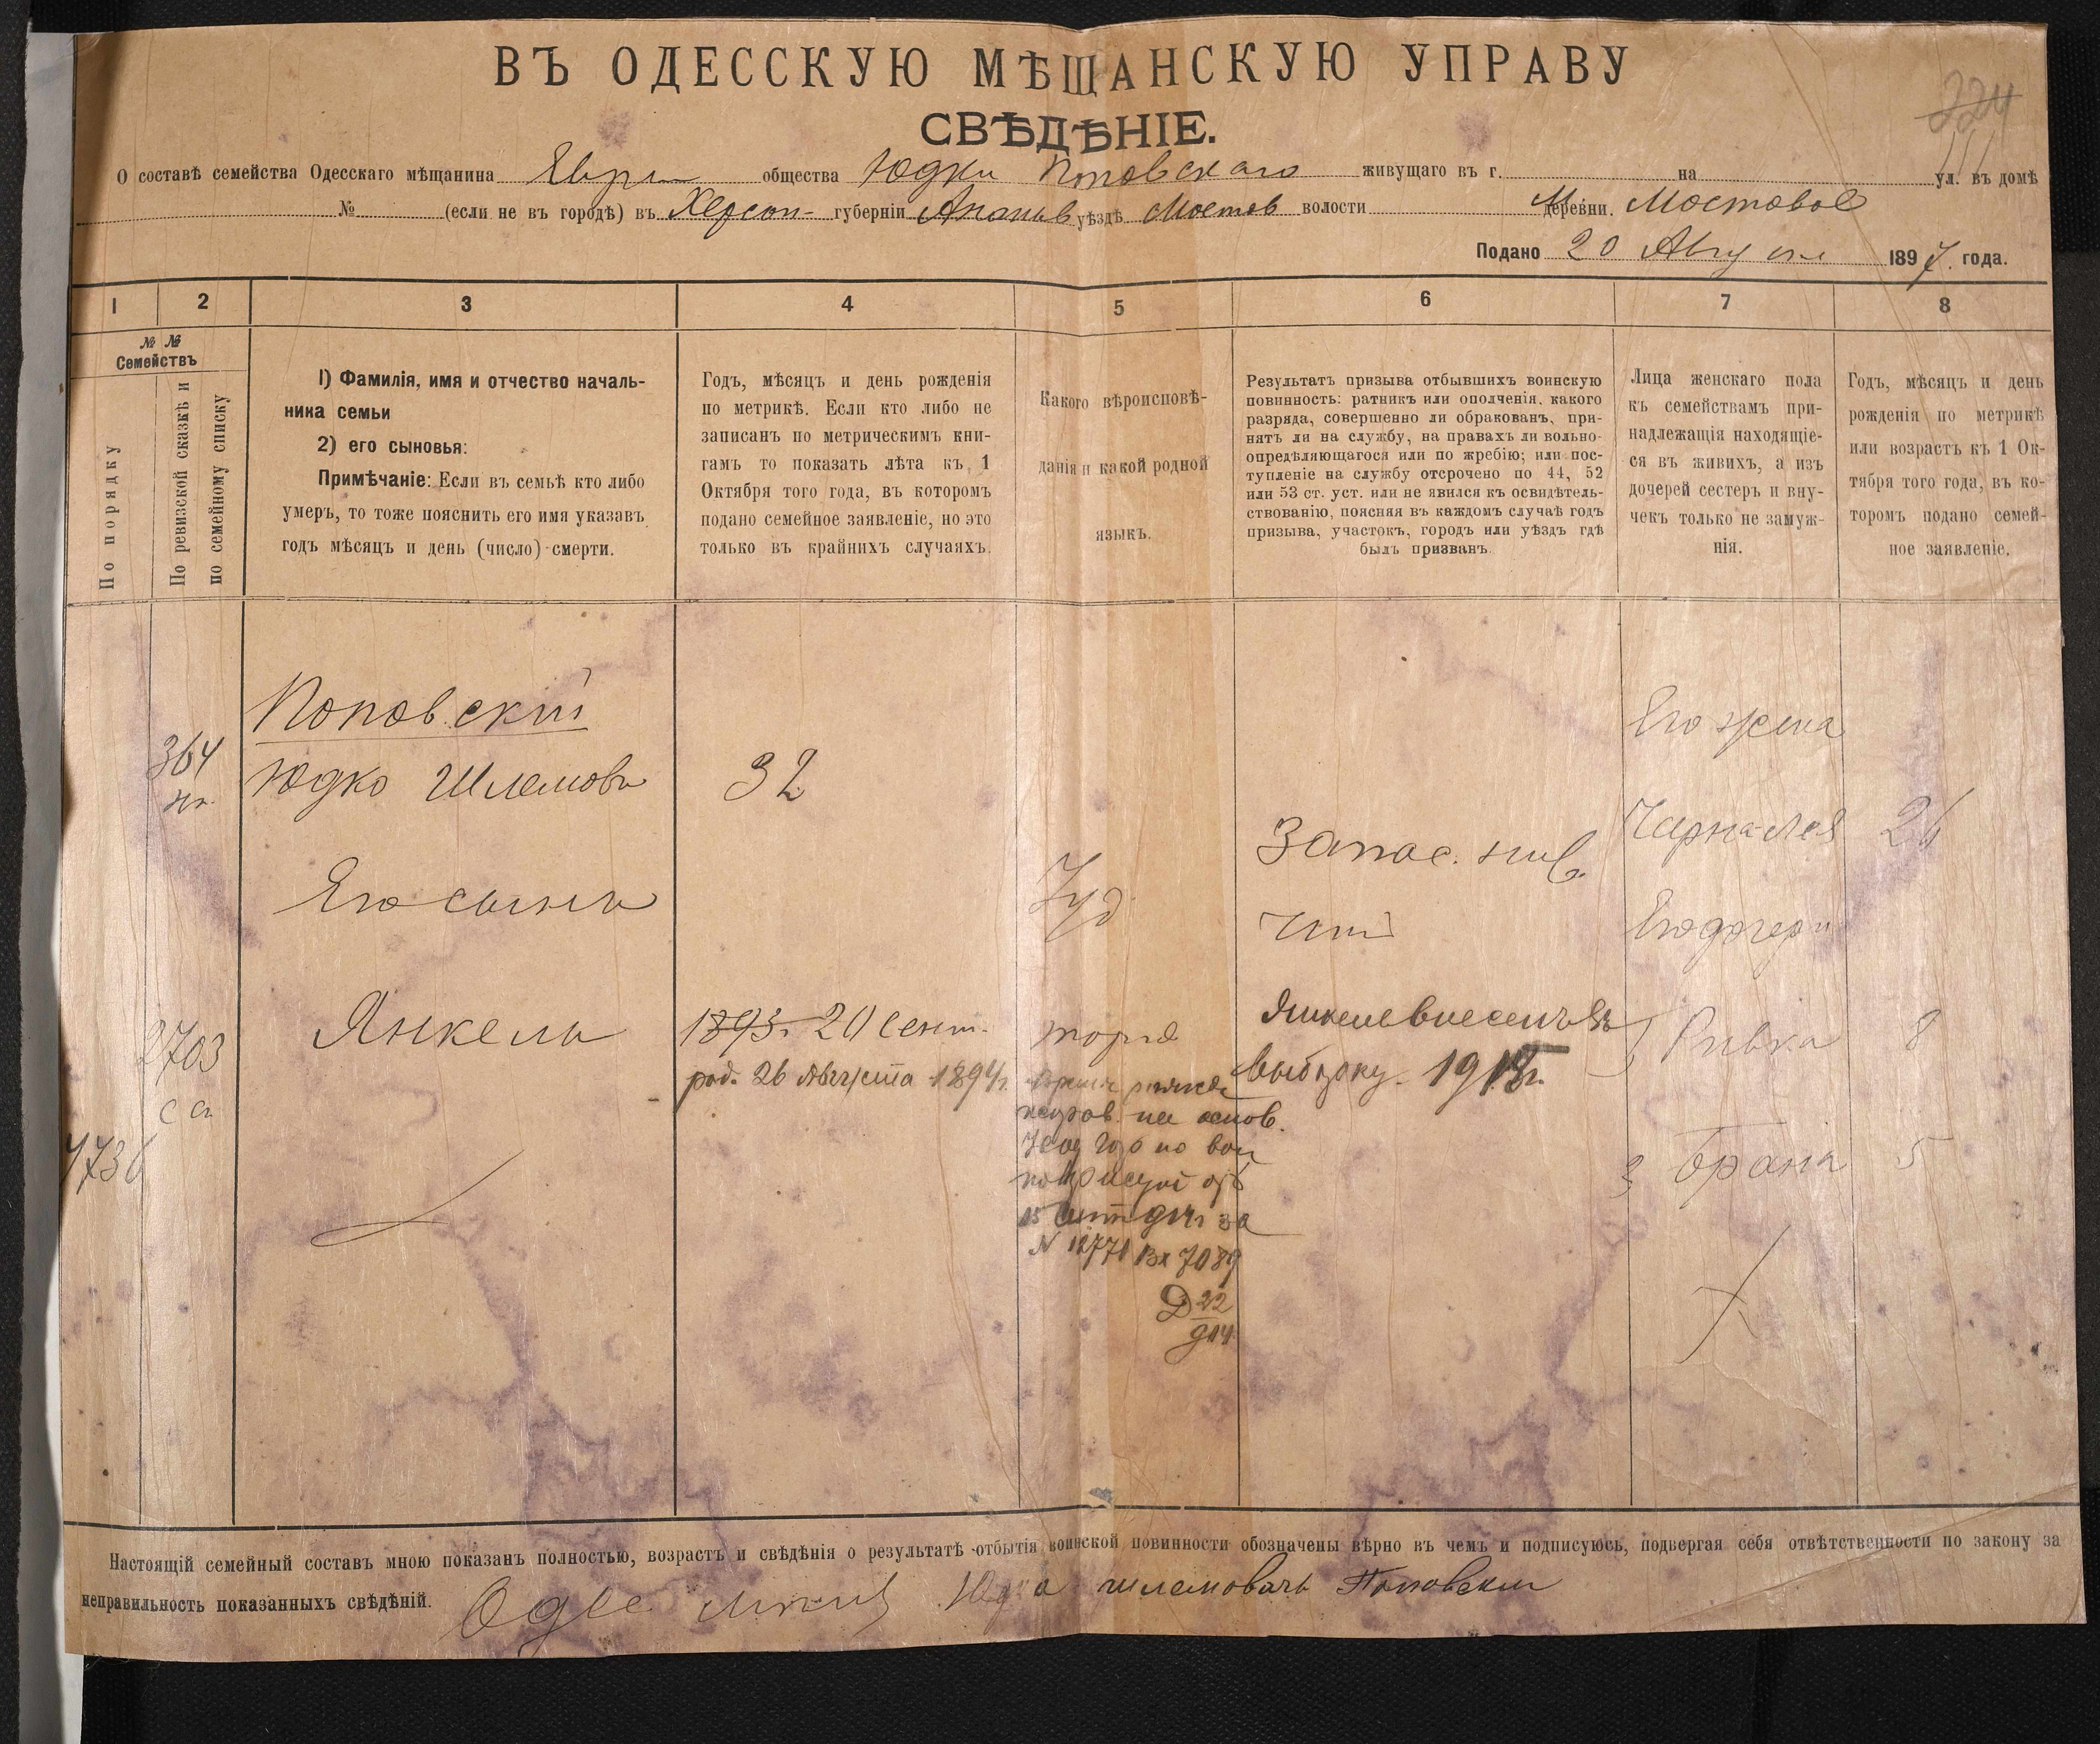 ВЪ ОДЕССКУЮ МѢЩАНСКУЮ УПРАВУ
СВѢДѢНІЕ.
224
О составѣ семейства Одесскаго мѣщанина Евр общества Юдки Поповскаго живущаго въ г. на ул. въ домѣ
№ (если не въ городѣ) въ Херсон- губерніи Ананьев уѣздѣ Мостов волости деревни. М Мостовое
Подано 20 Августа 1897. года.
1 2 3 4 5 6 7 8
№ №
Семействъ
По порядку
По ревизской сказкѣ и
по семейному списку
1) Фамилія, имя и отчество началь-
ника семьи
2) его сыновья:
Примѣчаніе: Если въ семьѣ кто либо
умеръ, то тоже пояснить его имя указавъ
годъ мѣсяцъ и день (число) смерти.
Годъ, мѣсяцъ и день рожденія
по метрикѣ. Если кто либо не
записанъ по метрическимъ кни-
гамъ то показать лѣта къ 1
Октября того года, въ которомъ
подано семейное заявленіе, но это
только въ крайнихъ случаяхъ.
Какого вѣроисповѣ-
данія и какой родной
языкъ.
Результатъ призыва отбывшихъ воинскую
повинность: ратникъ или ополченія, какого
разряда, совершенно ли обракованъ, при-
нятъ ли на службу, на правахъ ли вольно-
опредѣляющагося или по жребію; или пос-
тупленіе на службу отсрочено по 44, 52
или 53 ст. уст. или не явился къ освидѣтель-
ствованію, поясняя въ каждомъ случаѣ годъ
призыва, участокъ, городъ или уѣздъ гдѣ
былъ призванъ.
Лица женскаго пола
къ семействамъ при-
надлежащія находящіе-
ся въ живихъ, а изъ
дочерей сестеръ и вну-
чекъ только не замуж-
нія.
Годъ, мѣсяцъ и день
рожденія по метрикѣ
или возрастъ къ 1 Ок-
тября того года, въ ко-
торомъ подано семей-
ное заявленіе.
Поповскій
364
Юдко Шлемовъ 32
Его жена
Чарна-Лея 26
Запас. ниж.
чин
Его сынъ
Іуд
Его дочери
2703
Янкель 1893г. 20 Сент.
род. 26 Августа 1894г.
Янкель внесенъ въ
выборку. 1915г.
Ривка 8
4736
Брана 5
на основ.
15 Сент 914г за
N 12771 Вх 7089
Д 22
914
Настоящій семейный составъ мною показанъ полностью, возрастъ и свѣдѣнія о результатѣ отбытія воинской повинности обозначены вѣрно въ чемъ и подписуюсь, подвергая себя отвѣтственности по закону за
неправильность показанныхъ свѣдѣній. Юдка шлемовачъ Поповский